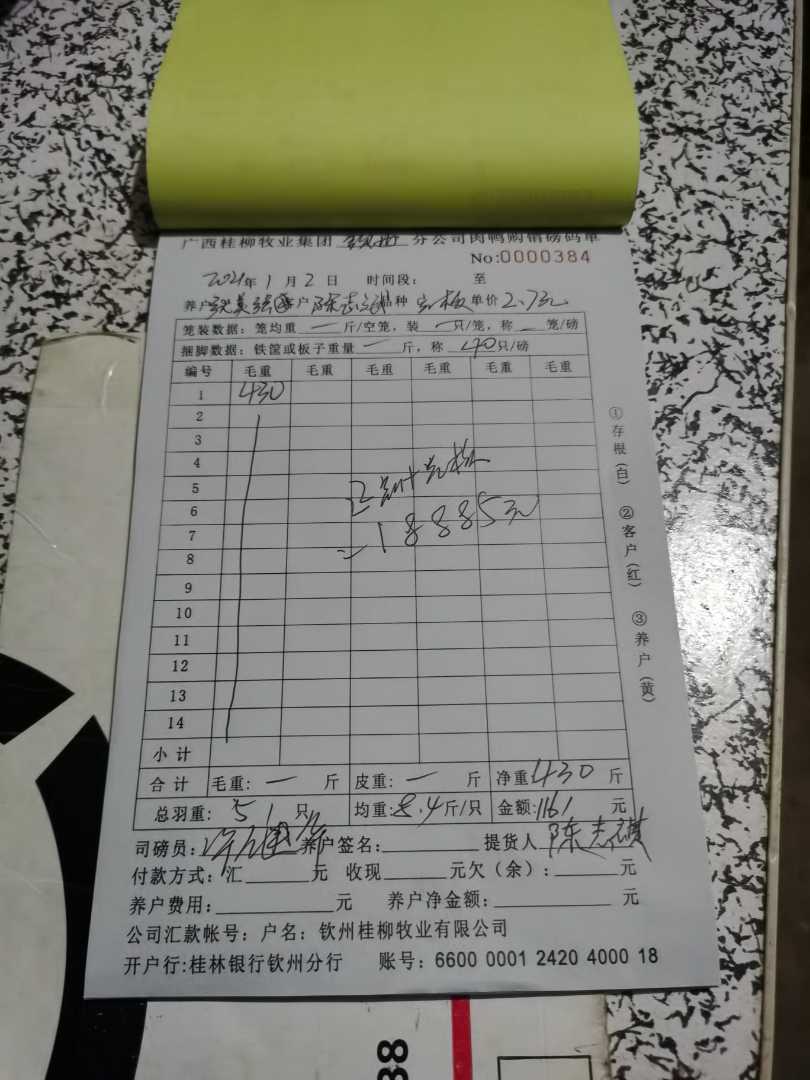 广西桂柳牧业集团 分公司肉鸭购销磅码单
No:0000384
2021年1月2日 时间段: 至
养户 张美强 客户 陈志祺 种 毛板 单价2.7元
笼装数据: 笼均重 一 斤/空笼, 装 一 只/笼, 称 一 笼/磅
捆脚数据: 铁筐或板子重量 一 斤, 称 40只/磅
编号 毛重 毛重 毛重 毛重 毛重 毛重
1 430
2
3
4
5
6
7
8
9
10
11
12
13
14
=18885元
小计
合计 毛重: 一 斤 皮重: 一 斤 净重430斤
总羽重: 51只 均重:8.4斤/只 金额:1161元
司磅员: 养户签名: 提货人 陈志祺
付款方式: 汇 元 收现 元欠(余): 元
养户费用: 元 养户净金额: 元
公司汇款帐号: 户名: 钦州桂柳牧业有限公司
开户行:桂林银行钦州分行 账号: 6600 0001 2420 4000 18
①存根(白) ②客户(红) ③养户(黄)
38